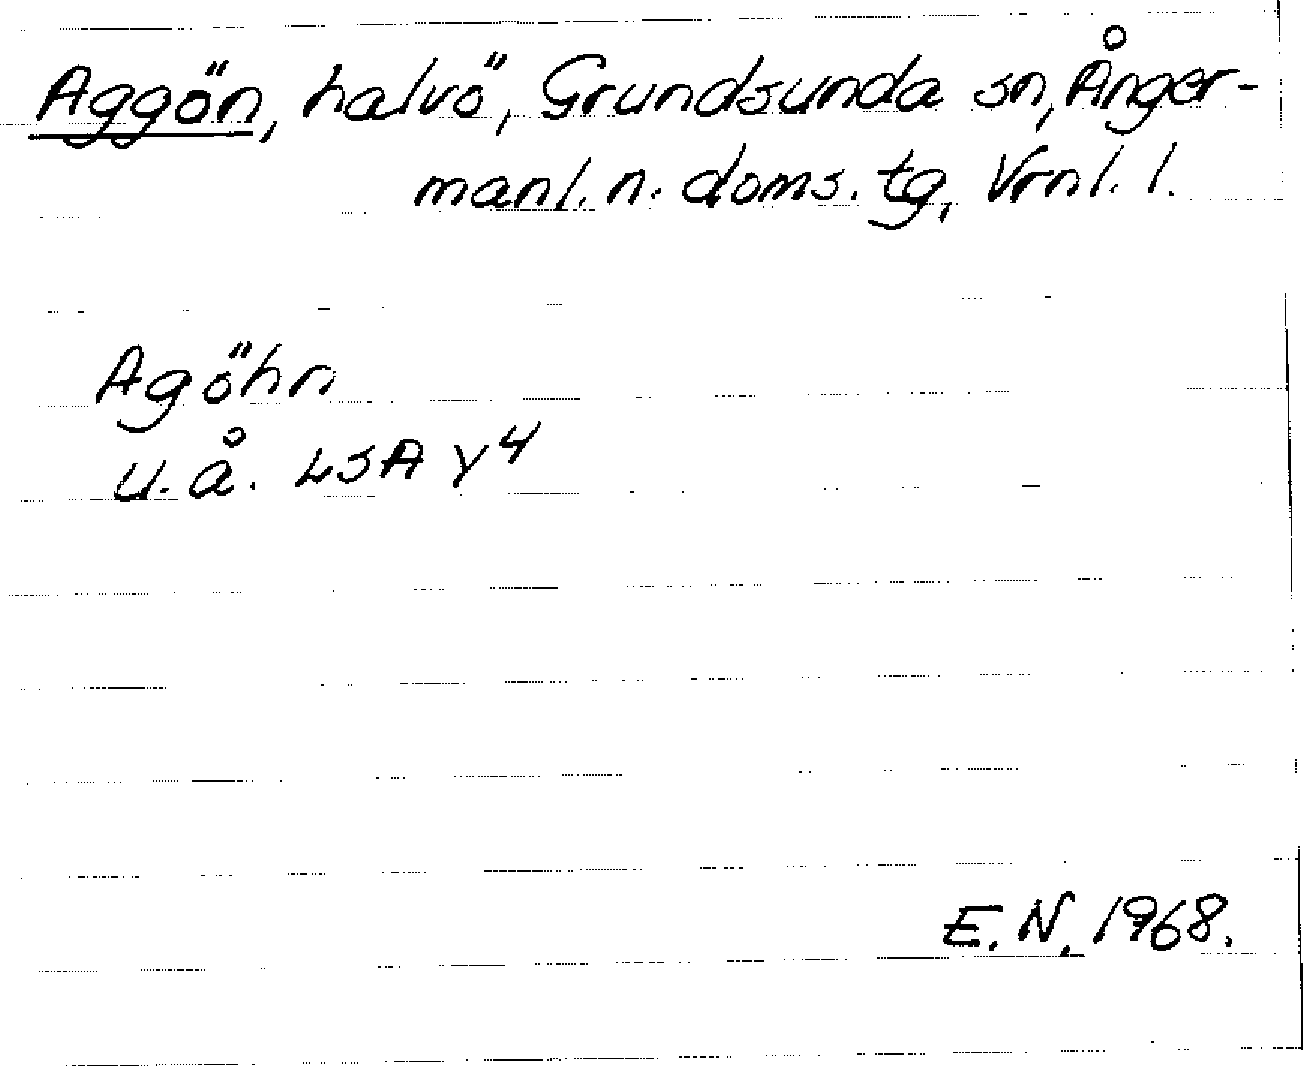 Aggön, halvö, Grundsunda sn, Ånger-
manl. n. doms. tg, Vrnl. l.
Agöhn
u.å. LSA Y4
E.N. 1968.